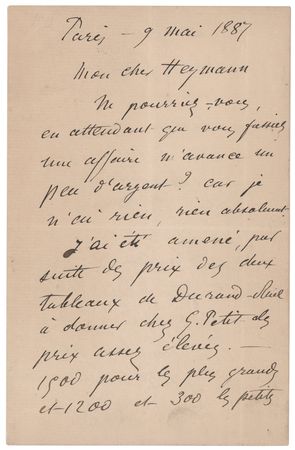 Paris – 9 mai 1887
Mon cher Heymann
Ne pourriez-vous,
en attendant que vous fassiez
une affaire m'avancer un
peu d'argent ? car je
n'ai rien, rien absolument.
J'ai été amené, par
suite des prix des deux
tableaux de Durand-Ruel
à donner chez G. Petit des
prix assez élevés. —
1500 pour les plus grands
et 1200 et 300 les petits